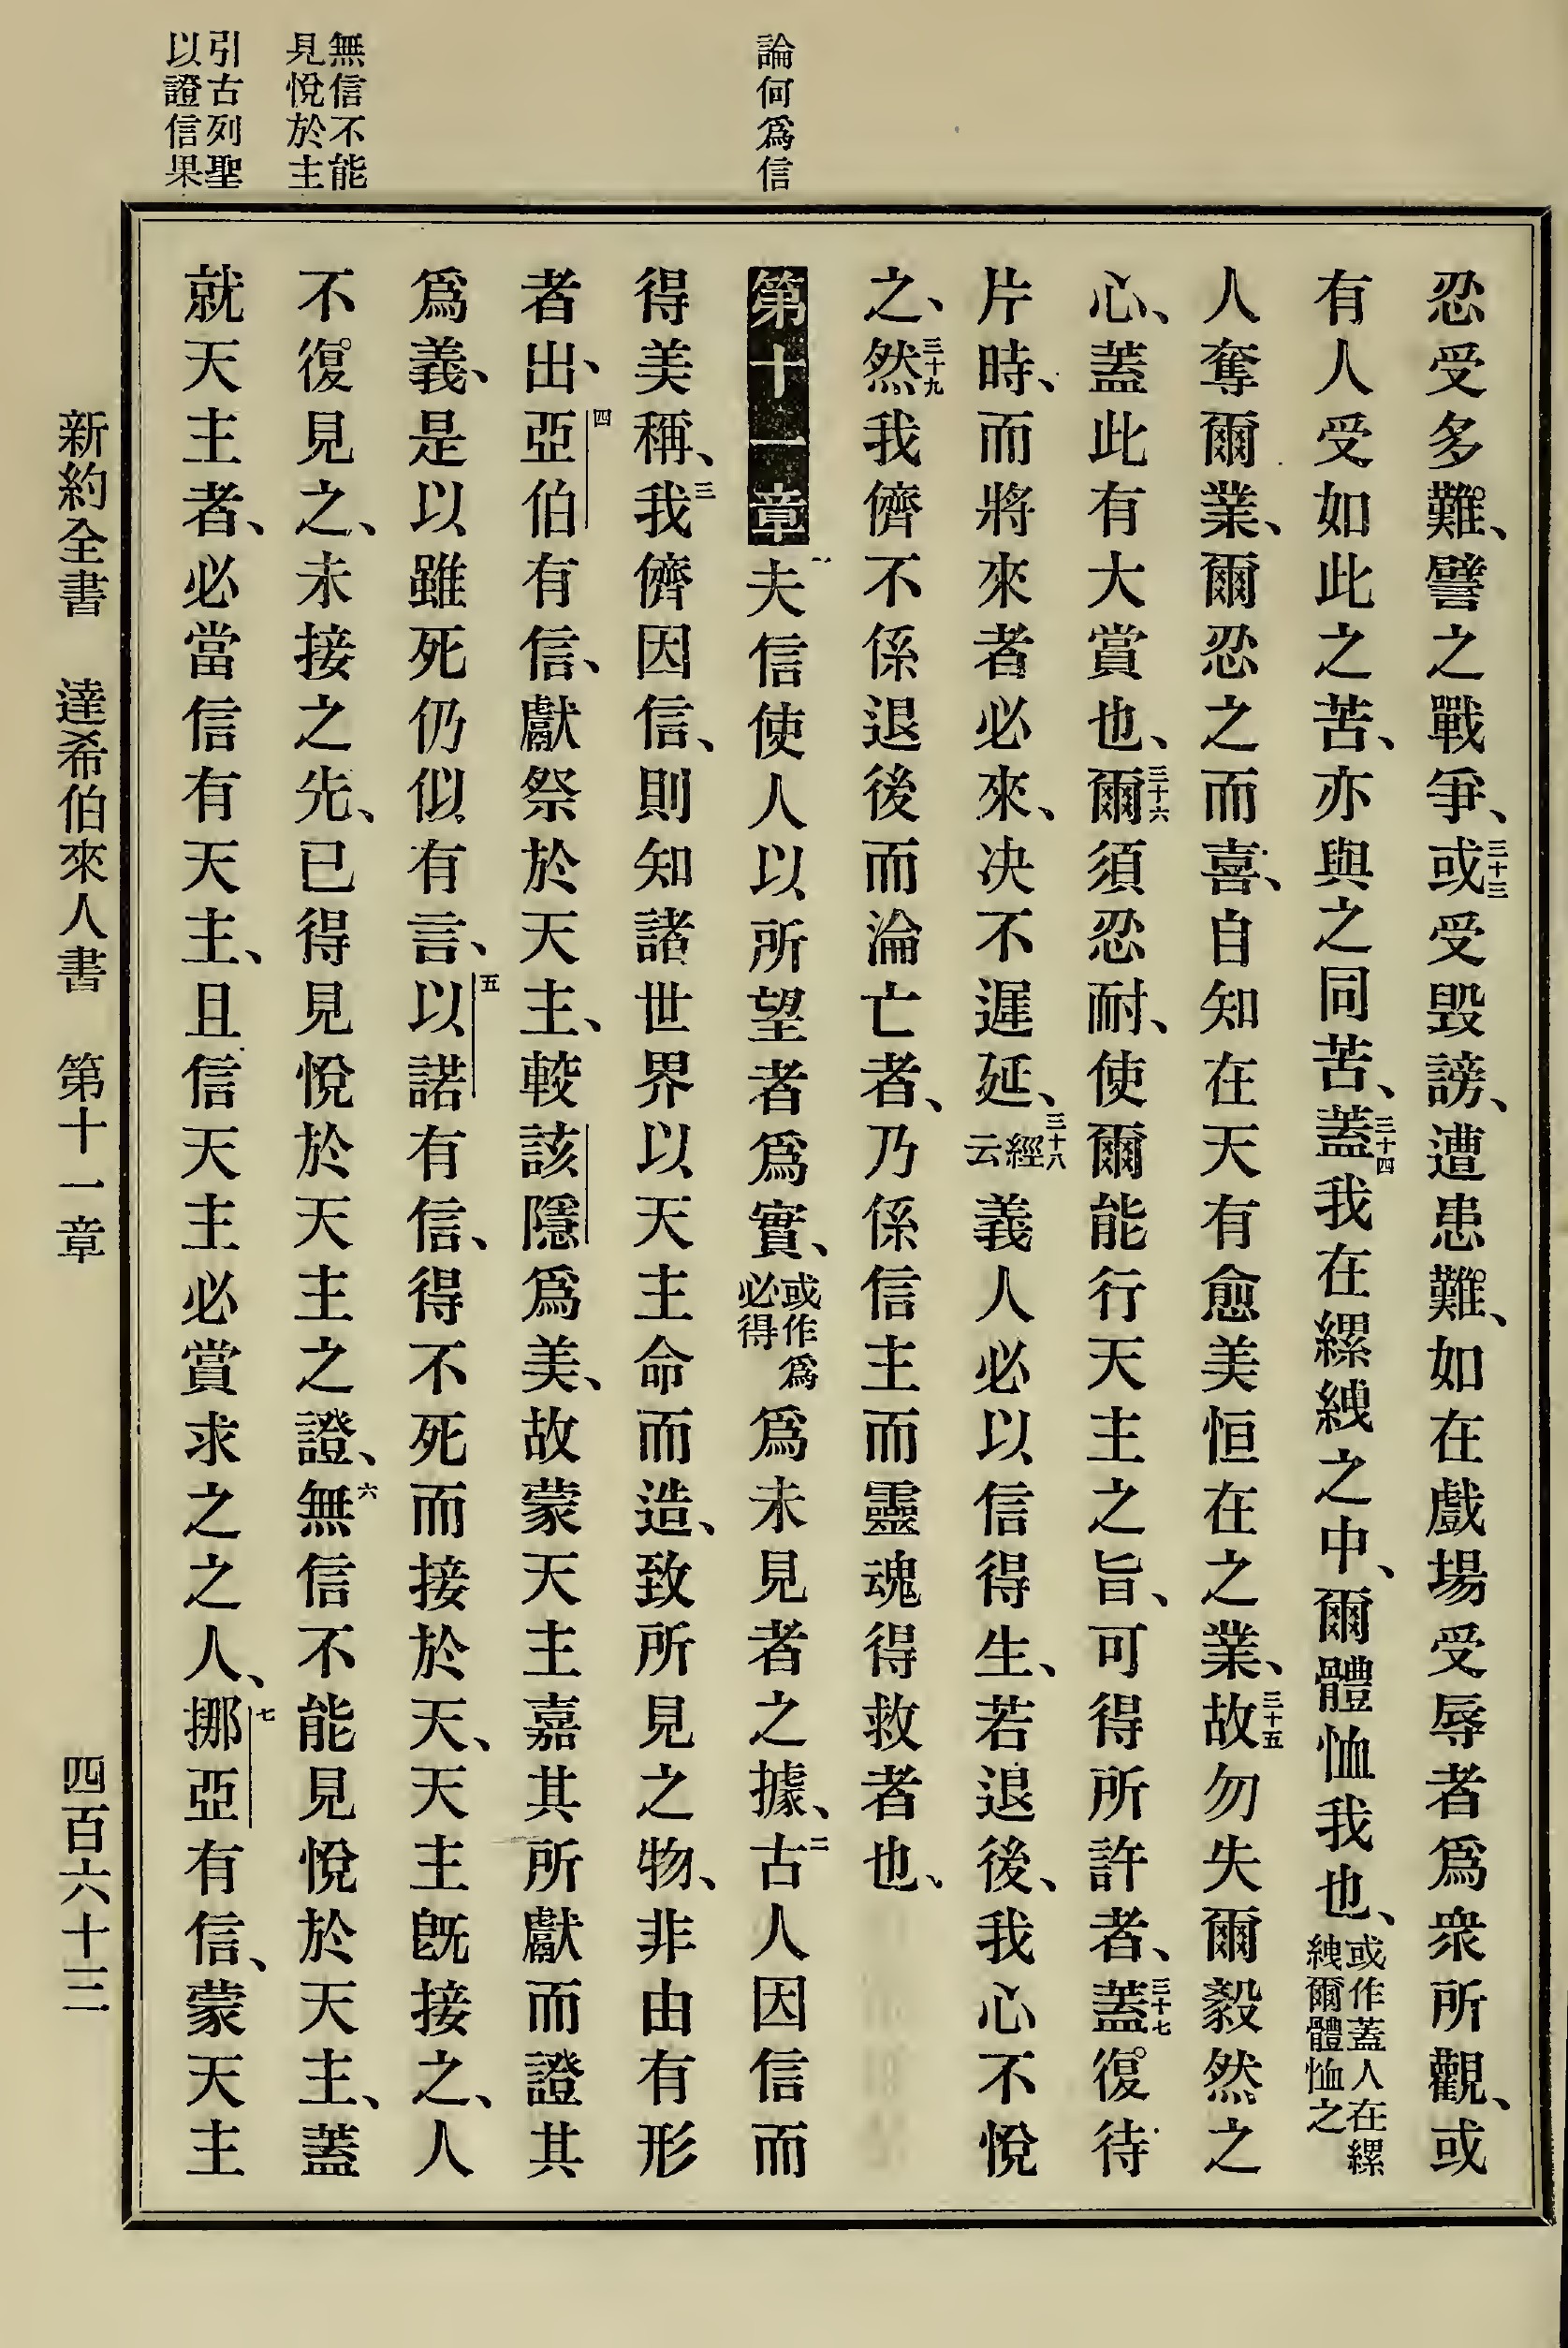 論何爲信
無信不能
見悅於主
引古列聖
以證信果
忍受多難、譬之戰爭、三十三或受毀謗、遭患難、如在戲場受辱者爲衆所觀、或
有人受如此之苦、亦與之同苦、三十四蓋我在縲絏之中、爾體恤我也、或作蓋人在縲絏爾體恤之
人奪爾業、爾忍之而喜、自知在天有愈美恒在之業、三十五故勿失爾毅然之
心、蓋此有大賞也、三十六爾須忍耐、使爾能行天主之旨、可得所許者、三十七蓋復待
片時、而將來者必來、決不遲延、三十八經云義人必以信得生、若退後、我心不悅
之、三十九然我儕不係退後而淪亡者、乃係信主而靈魂得救者也、
第十一章一夫信使人以所望者爲實、或作爲必得爲未見者之據、二古人因信而
得美稱、三我儕因信、則知諸世界以天主命而造、致所見之物、非由有形
者出、四亞伯有信、獻祭於天主、較該隱爲美、故蒙天主嘉其所獻而證其
爲義、是以雖死仍似有言、五以諾有信、得不死而接於天、天主旣接之、人
不復見之、未接之先、已得見悅於天主之證、六無信不能見悅於天主、蓋
就天主者、必當信有天主、且信天主必賞求之之人、七挪亞有信、蒙天主
新約全書 達希伯來人書 第十一章 四百六十三